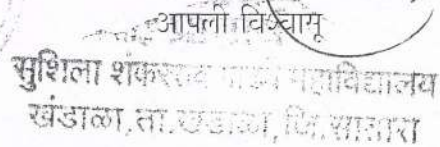 आपली विश्वासू
सुशिला शंकरराव गाढवे महाविद्यालय
खंडाळा, ता.खंडाळा, जि.सातारा